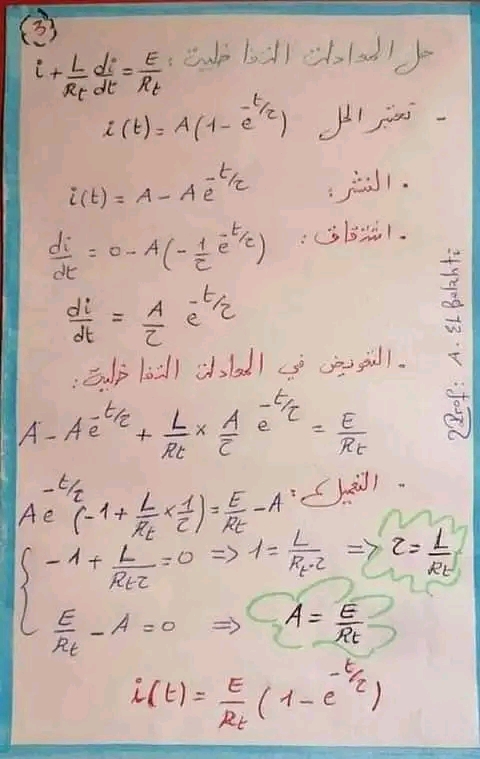 (3)
حل المعادلات التفاضلية :
i + L/Rt di/dt = E/Rt
- نعتبر الحل i(t) = A(1 - e^-t/τ)
• النشر :
i(t) = A - A e^-t/τ
• اشتقاق :
di/dt = 0 - A(-1/τ e^-t/τ)
di/dt = A/τ e^-t/τ
• التعويض في المعادلات التفاضلية :
A - A e^-t/τ + L/Rt × A/τ e^-t/τ = E/Rt
• التعميل :
A e^-t/τ (-1 + L/Rt × 1/τ) = E/Rt - A
-1 + L/Rt·τ = 0 => 1 = L/Rt·τ => τ = L/Rt
E/Rt - A = 0 => A = E/Rt
i(t) = E/Rt (1 - e^-t/τ)
Prof: A. EL Balahti